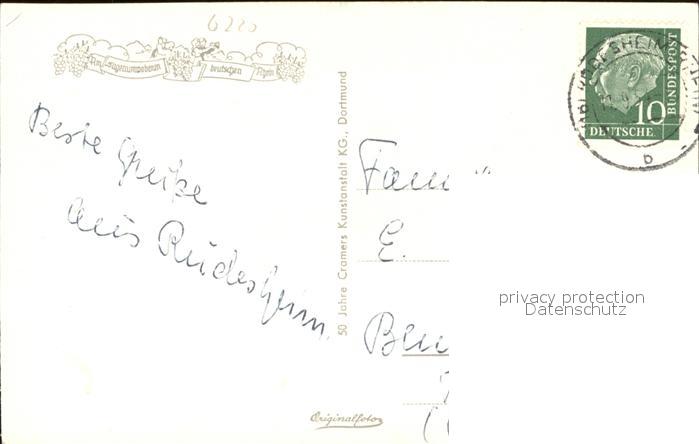 6220
Am sagenumwobenen deutschen Rhein
Beste Grüße
aus Rüdesheim.
50 Jahre Cramers Kunstanstalt KG., Dortmund
Originalfoto
Fam
E.
10
DEUTSCHE
BUNDESPOST
b
privacy protection
Datenschutz